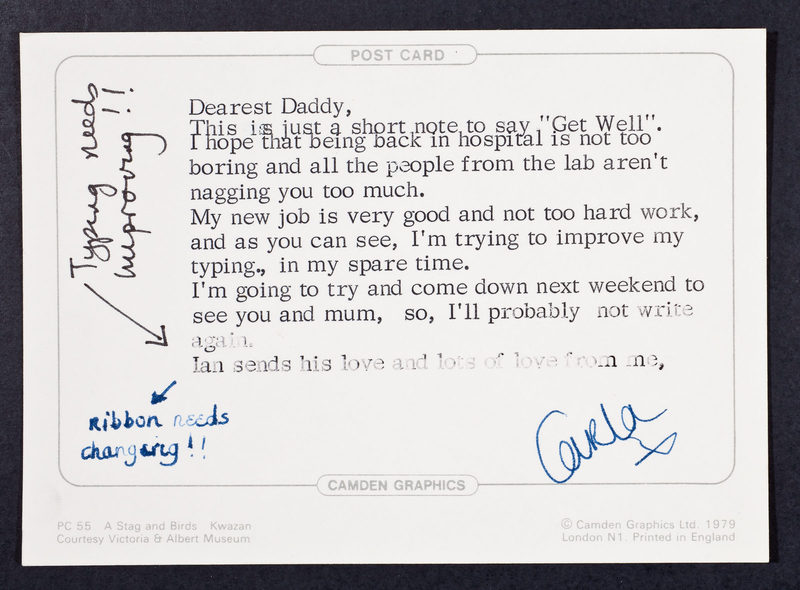 POST CARD
Typing needs
improving!!
Dearest Daddy,
This is just a short note to say "Get Well".
I hope that being back in hospital is not too
boring and all the people from the lab aren't
nagging you too much.
My new job is very good and not too hard work,
and as you can see, I'm trying to improve my
typing., in my spare time.
I'm going to try and come down next weekend to
see you and mum, so, I'll probably not write
again.
Ian sends his love and lots of love from me,
Ribbon needs
changing!!
Carla x
CAMDEN GRAPHICS
PC 55 A Stag and Birds Kwazan
Courtesy Victoria & Albert Museum
© Camden Graphics Ltd. 1979
London N1. Printed in England